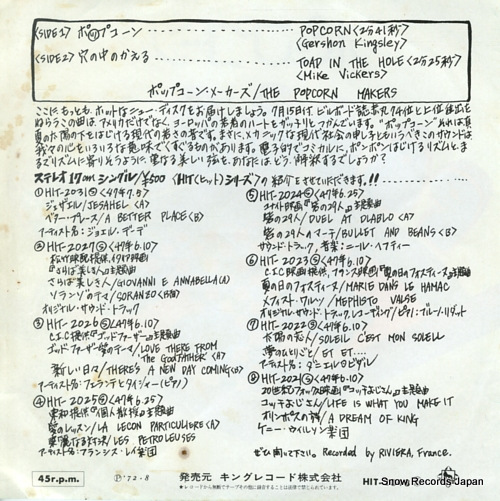 〈SIDE 1〉 ポップコーン POPCORN〈2分41秒〉
〈Gershon Kingsley〉
〈SIDE 2〉 穴の中のかえる TOAD IN THE HOLE〈2分25秒〉
〈Mike Vickers〉
ポップコーン・メーカーズ/THE POPCORN MAKERS
ここにもっとも、ホットなニュー・ディスクをお届けしましょう。7月15日付ビルボード誌
この曲は、アメリカだけでなく、ヨーロッパの若者のハートをガッチリとつかんでいます。"ポップコーン"それは真
夏の太陽の下をはじける現代の若さの音です。まさに、メカニックな現代社会の申し子ともいうべきこのサウンドは
我々の心をいろいろな意味でくすぐるものがあります。電子的でコミカルに、ポンポンはじけるリズムと、ま
るでリズムに寄りそうように 重なる美しい弦を、あなたは どう、解釈するでしょうか?
ステレオ17cmシングル/¥500 〈HIT(ヒット)シリーズ〉の紹介をさせていただきます。!!
① HIT-2031〈47年7.5〉
ジェザエル/JESAHEL〈A〉
ベター・プレース/A BETTER PLACE〈B〉
アーティスト名:ジョエル・デーデ
② HIT-2027〈47年6.10〉
松竹映配提供、イタリア映画
『さらば美しき人』主題曲
さらば美しき人/GIOVANNI E ANNABELLA〈A〉
ソランゾのテーマ/SORANZO〈B面〉
オリジナル・サウンド・トラック
③ HIT-2026〈47年6.10〉
C.I.C提供『ゴッドファーザー』主題曲
ゴッドファーザー愛のテーマ/LOVE THERE FROM
THE GODFATHER〈A〉
新しい日々/THERE'S A NEW DAY COMING〈B〉
アーティスト名:フェランテとタイシャー(ピアノ)
④ HIT-2025〈47年6.25〉
東和提供『個人教授』主題曲
愛のレッスン/LA LECON PARTICULIERE〈A〉
LES PETROLEUSES
アーティスト名:フランシス・レイ楽団
⑤ HIT-2024〈47年6.25〉
ユナイト映画『砦の29人』主題曲
砦の29人/DUEL AT DIABLO〈A〉
砦の29人のマーチ/BULLET AND BEANS〈B〉
サウンド・トラック、音楽:ニール・ヘフティー
⑥ HIT-2023〈47年6.10〉
C.I.C映画提供、フランス映画『夏の日のフォスティーヌ』主題曲
夏の日のフォスティーヌ/MARIE DANS LE HAMAC
メフィスト・ワルツ/MEPHISTO VALSE
オリジナル・サウンド・トラック・レコーディング/ピアノ:ブルーノ・リグット
⑦ HIT-2022〈47年6.10〉
太陽の恋人/SOLEIL C'EST MON SOLEIL
愛のひとりごと/ET ET....
アーティスト名:ダニエル・ビダル
⑧ HIT-2021〈47年6.10〉
20世紀フォックス映画『コッチおじさん』主題曲
コッチおじさん/LIFE IS WHAT YOU MAKE IT
オリンポスの詩/A DREAM OF KING
ケニー・ウィルソン楽団
ぜひ聞いて下さい。 Recorded by RIVIERA, France.
45r.p.m.
Ⓟ '72-8
発売元 キングレコード株式会社
★レコードから無断でテープその他に録音することは法律で禁じられています。
HIT-
Snow Records Japan
www.recordsale.jp